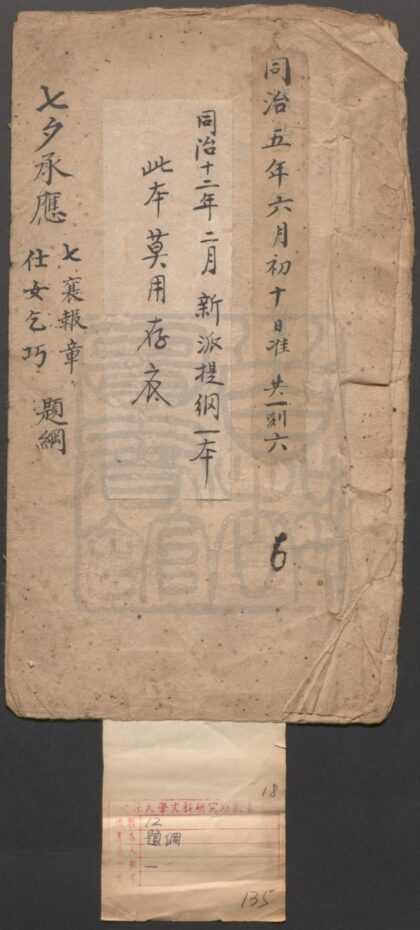 同治五年六月初十日准 共一刻六
6
同治十二年二月新派提綱一本
此本莫用存底
七夕承應
七襄報章
仕女乞巧
題綱
18
大學文科研究所
12
題綱
一
135